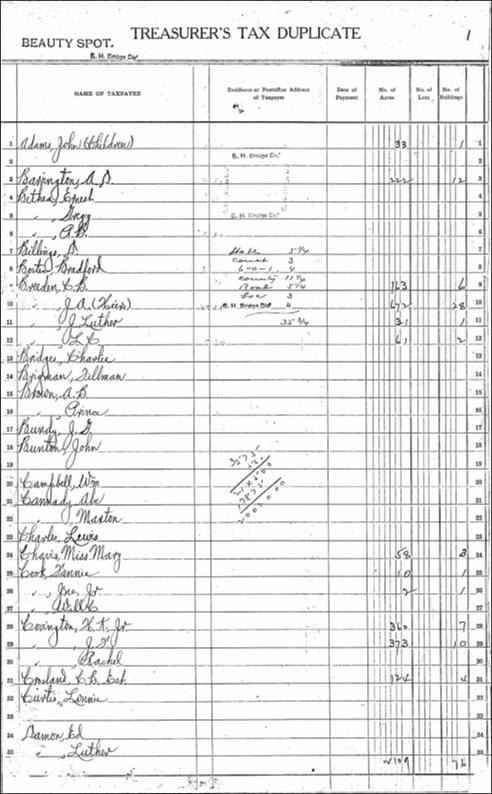 TREASURER'S TAX DUPLICATE
1
BEAUTY SPOT.
B. H. Bridge Dis'
NAME OF TAXPAYER
Residence or Postoffice Address of Taxpayer
Date of Payment
No. of Acres
No. of Lots
No. of Buildings
1 Adams, John (Children) 33 1 1
2 B. H. Bridge Dis' 2
3 Barrington, A. D. 222 12 3
4 Bethea, Ernest 4
5 " Gregg B. H. Bridge Dis' 5
6 " A.B. 6
7 Billings, D. State 5 1/4 7
8 Bostic, Bradford Const 3 8
6-0-1. 4
9 Breeden, C.B. County 11 1/4 163 6 9
Road 5 1/4
10 " J.A. (Heirs) 3 672 28 10
B. H. Bridge Dis' 4
11 " J. Luther 35 3/4 31 1 11
12 " L C 61 2 12
13 Bridges, Charlie 13
14 Brigman, Tillman 14
15 Brown, A.B. 15
16 " 16
17 Bundy, J. 17
18 Bunton, John 18
19 3575 19
20 Campbell, Wm 20
21 Cannady, Abe 21
22 " Marton 200200 22
23 Charles, Lewis 23
24 Chavis, Miss Mary 58 3 24
25 Cook, Fannie 10 1 25
26 " Jno, Jr 2 1 26
27 " Will C 27
28 Covington, H. K. Jr 360 7 28
29 " J. 373 10 29
30 " Rachel 30
31 Crosland, C.B. Est. 124 4 31
32 Curtis, Lonnie 32
33 33
34 Damon, Ed 34
35 " Luther 35
2109 76